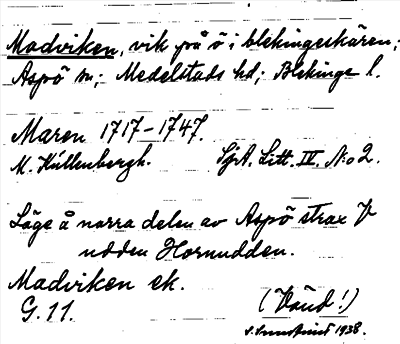 Madviken, vik på ö i blekingeskären;
Aspö sn; Medelstads hd; Blekinge l.
Maren 1717–1747.
M. Küllenbergh. SjA. Litt. IV. No 2.
Läge å norra delen av Aspö strax V
udden Hornudden.
Madviken ek.
G. 11. (Vaud!)
1938.